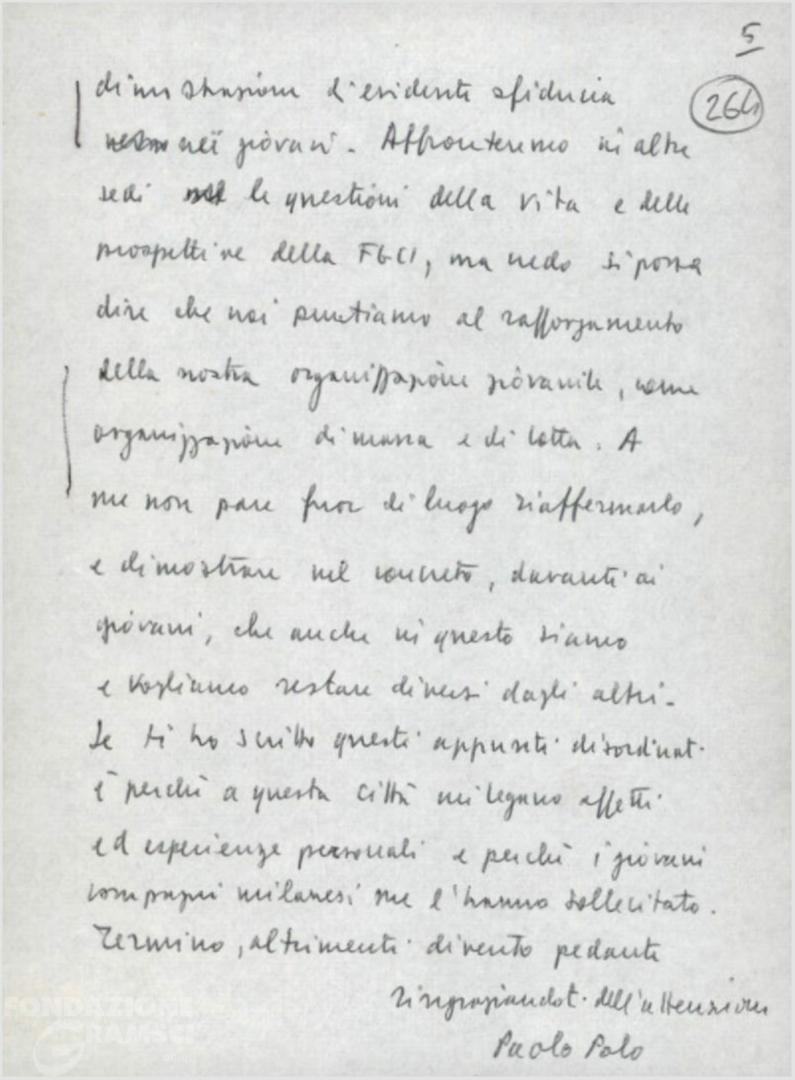 5
264
dimostrazione d'evidente sfiducia
nei giovani. Affronteremo in altre
sedi le questioni della vita e delle
prospettive della FGCI, ma credo si possa
dire che noi puntiamo al rafforzamento
della nostra organizzazione giovanile, come
organizzazione di massa e di lotta. A
me non pare fuor di luogo riaffermarlo,
e dimostrare nel concreto, davanti ai
giovani, che anche in questo siamo
e vogliamo restare diversi dagli altri.
Se ti ho scritto questi appunti disordinati
è perché a questa città mi legano affetti
ed esperienze personali e perché i giovani
compagni milanesi me l'hanno sollecitato.
Termino, altrimenti divento pedante
ringraziandoti dell'attenzione
Paolo Polo
FONDAZIONE
GRAMSCI